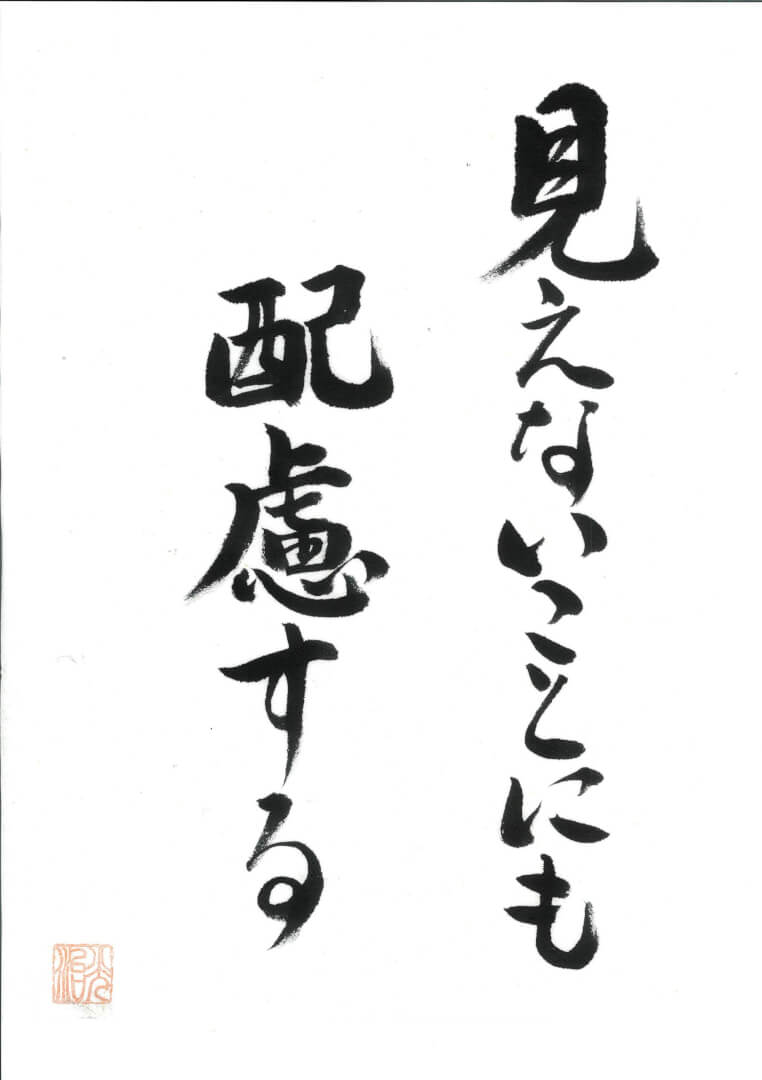 見えないことにも
配慮する